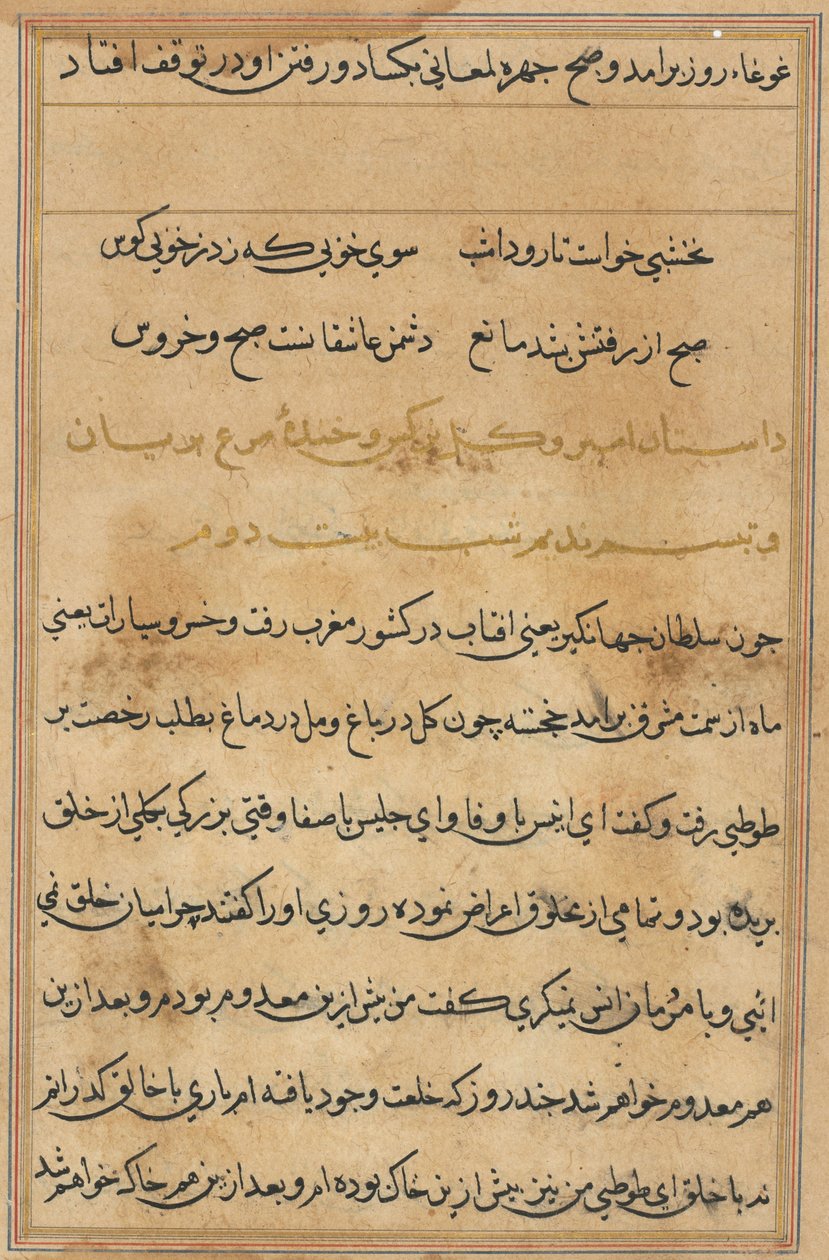 غوغاء روز برامد و صبح جهره لمعانی بکساد و رفتن او در توقف افتاد
نخشبي خواست تا رود امشب سوي خوبي که زد ز خوبي کوس
صبح از رفتنش بشد مانع دشمن عاشقانست صبح و خروس
داستان امیر و کل و خندهٔ مرغ بریان
و تبسم ندیم شب بیست دوم
جون سلطان جهانکیر یعني افتاب در کشور مغرب رفت و خسرو سیارات یعني
ماه از سمت مشرق برامد خجسته چون کل در باغ و مل در دماغ بطلب رخصت بر
طوطي رفت و کفت اي انیس با وفا و اي جلیس با صفا وقتي بزرکي بکلي از خلق
بریده بود و تمامي از مخلوق اعراض نموده روزي او را کفتند چرا میان خلق نمي
ائي و با مردمان انس نمیکري کفت من پیش ازین معدوم بودم و بعد ازین
هم معدوم خواهم شد جند روز که خلعت وجود یافته ام باري با خالق کذرانم
نه با خلق اي طوطي من نیز پیش ازین خاک بوده ام و بعد ازین هم خاک خواهم شد